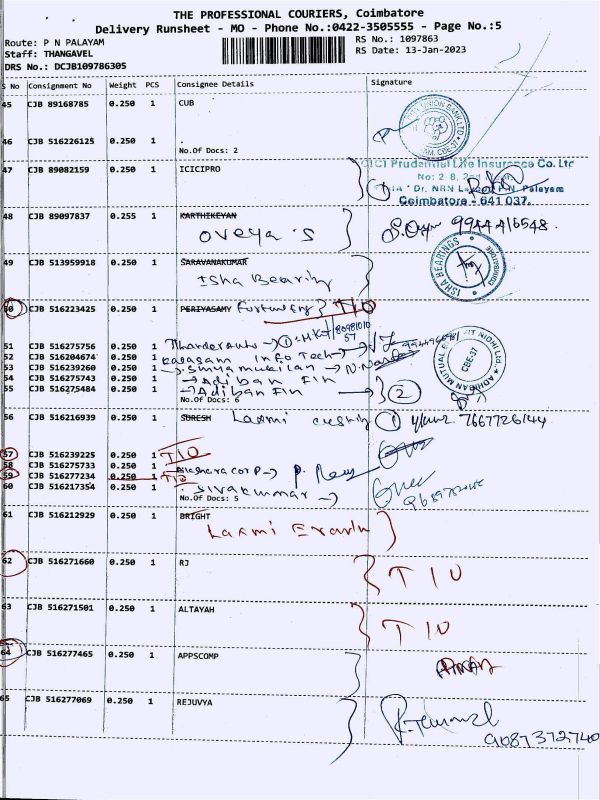 THE PROFESSIONAL COURIERS, Coimbatore
Delivery Runsheet - MO - Phone No.:0422-3505555 - Page No.:5
Route: P N PALAYAM
RS No.: 1097863
Staff: THANGAVEL
RS Date: 13-Jan-2023
DRS No.: DCJB109786305
S No Consignment No Weight PCS Consignee Details Signature
45 CJB 89168785 0.250 1 CUB
46 CJB 516226125 0.250 1
No.Of Docs: 2
47 CJB 89082159 0.250 1 ICICIPRO
ICICI Prudential Life Insurance Co. Ltd
No: 2 8, 2nd
Dr. NRN Palayam
Coimbatore - 641 037.
48 CJB 89097837 0.255 1 KARTHIKEYAN
Oveya's 9944416548.
49 CJB 513959918 0.250 1 SARAVANAKUMAR
Isha Bearing
ISHA BEARINGS
50 CJB 516223425 0.250 1 PERIYASAMY T10
51 CJB 516275756 0.250 1
52 CJB 516204674 0.250 1 Info Tech
53 CJB 516239260 0.250 1
54 CJB 516275743 0.250 1 Adiban Fin
55 CJB 516275484 0.250 1 Adiban Fin 2
No.Of Docs: 6
ADHBAN MUTUAL BENEFIT NIDHI LTD
CBE-37
56 CJB 516216939 0.250 1 SURESH Laxmi 1 7667726144
57 CJB 516239225 0.250 1 T10
58 CJB 516275733 0.250 1
59 CJB 516277234 0.250 1 T10
60 CJB 516217354 0.250 1 Sivakumar
No.Of Docs: 5
61 CJB 516212929 0.250 1 BRIGHT
Laxmi
62 CJB 516271660 0.250 1 RJ T10
63 CJB 516271501 0.250 1 ALTAYAH T10
64 CJB 516277465 0.250 1 APPSCOMP
65 CJB 516277069 0.250 1 REJUVYA
9087372740